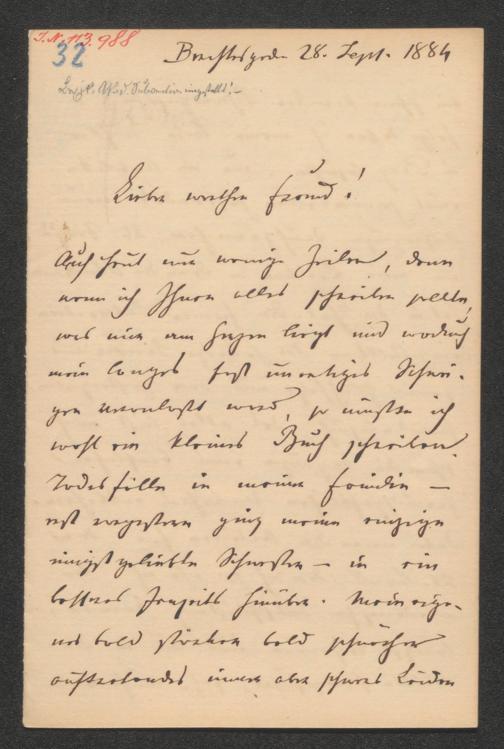 I.N. 113.988
32
Berchtesgaden 28. Sept. 1884
Lieber werther Freund!
Auch heut nur wenige Zeilen, denn
wenn ich Ihnen alles schreiben sollte,
was mir am Herzen liegt und wodurch
mein langes fast unartiges Schwei-
gen veranlaßt ward, so müßte ich
wohl ein kleines Buch schreiben.
Todesfälle in meiner Familie –
erst vorgestern ging meine einzige
innigst geliebte Schwester – in ein
besseres Jenseits hinüber. Mein eige-
nes bald stärker bald schwächer
auftretendes immer aber schweres Leiden